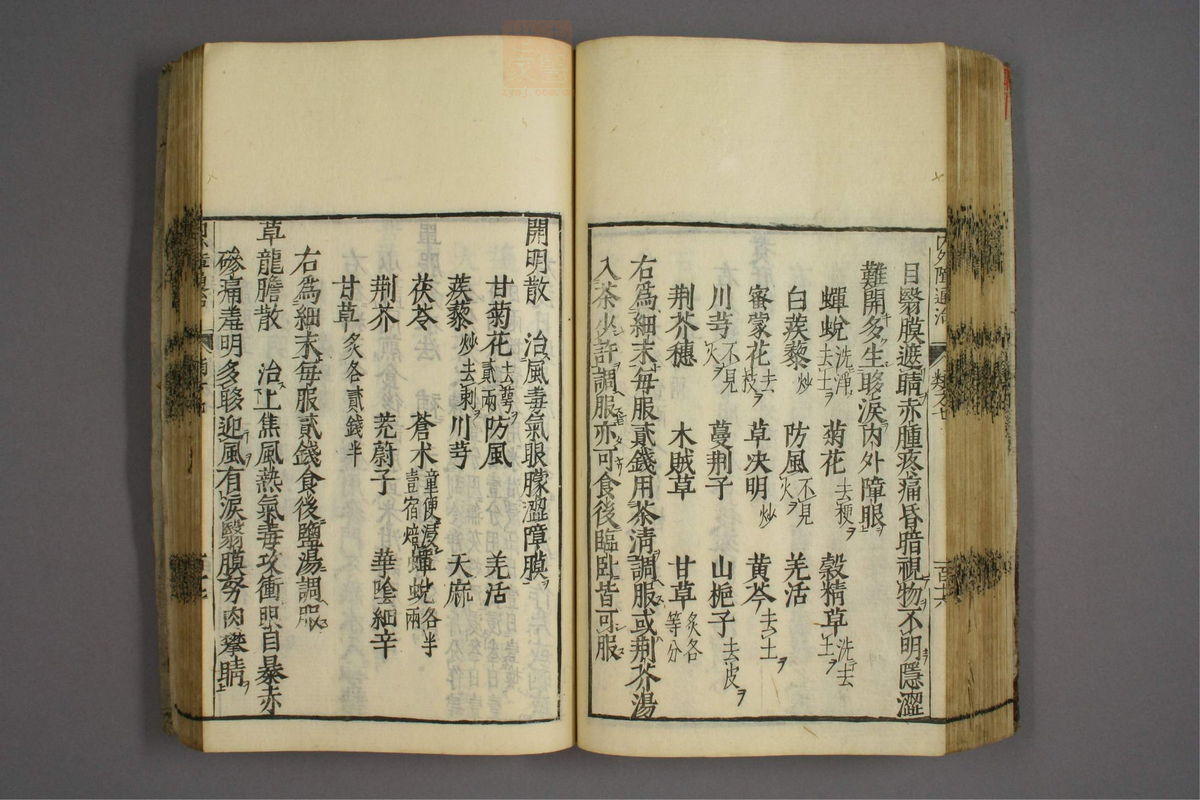 目翳膜遮睛赤腫疼痛昏暗視物不明隱澀
難開多生眵淚内外障眼
蟬蛻洗淨去土 菊花去梗 穀精草洗去土
白蒺藜炒 防風不見火 羌活
蜜蒙花去技 草决明炒 黄芩去土
川芎不見火 蔓荆子 山梔子去皮
荆芥穗 木賊草 甘草炙各等分
右爲細末每服貳錢用茶清調服或荆芥湯
入茶少許調服亦可食後臨臥皆可服
開明散 治風毒氣眼朦澀障膜
甘菊花去萼貳兩 防風 羌活
蒺藜炒去刺 川芎 天麻
茯苓 蒼术童便浸壹宿焙 蟬蛻各半兩
荆芥 茺蔚子 華陰細辛
甘草炙各貳錢半
右爲細末每服貳錢食後鹽湯調服
草龍膽散 治上焦風熱氣毒攻衝眼目暴赤
磣痛羞明多眵迎風有淚翳膜努肉攀睛